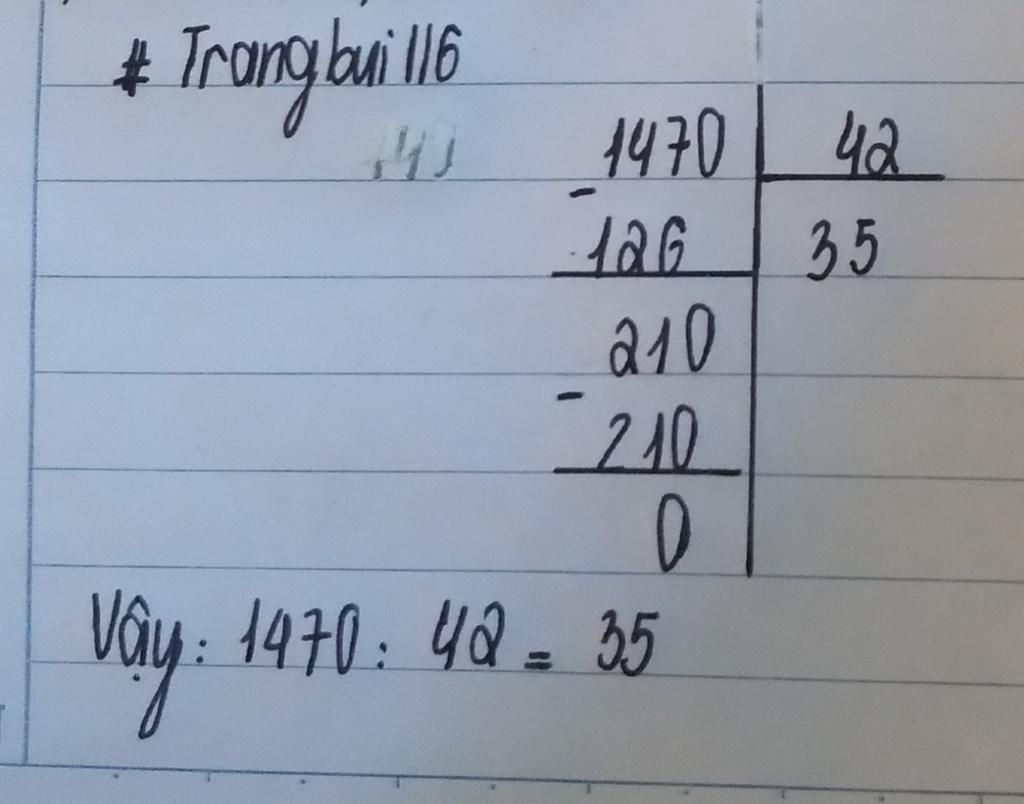 # Trangbui116
1470 42
- 126 35
210
- 210
0
Vậy: 1470 : 42 = 35